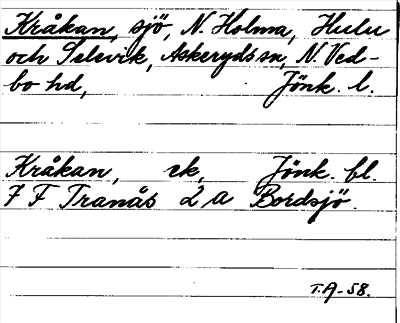 Kråkan, sjö, N. Holma, Hulu
och Selevik, Askeryds sn, N. Ved-
bo hd, Jönk. l.
Kråkan, ek, Jönk. bl.
7 F Tranås 2 a Bordsjö.
T.A-58.